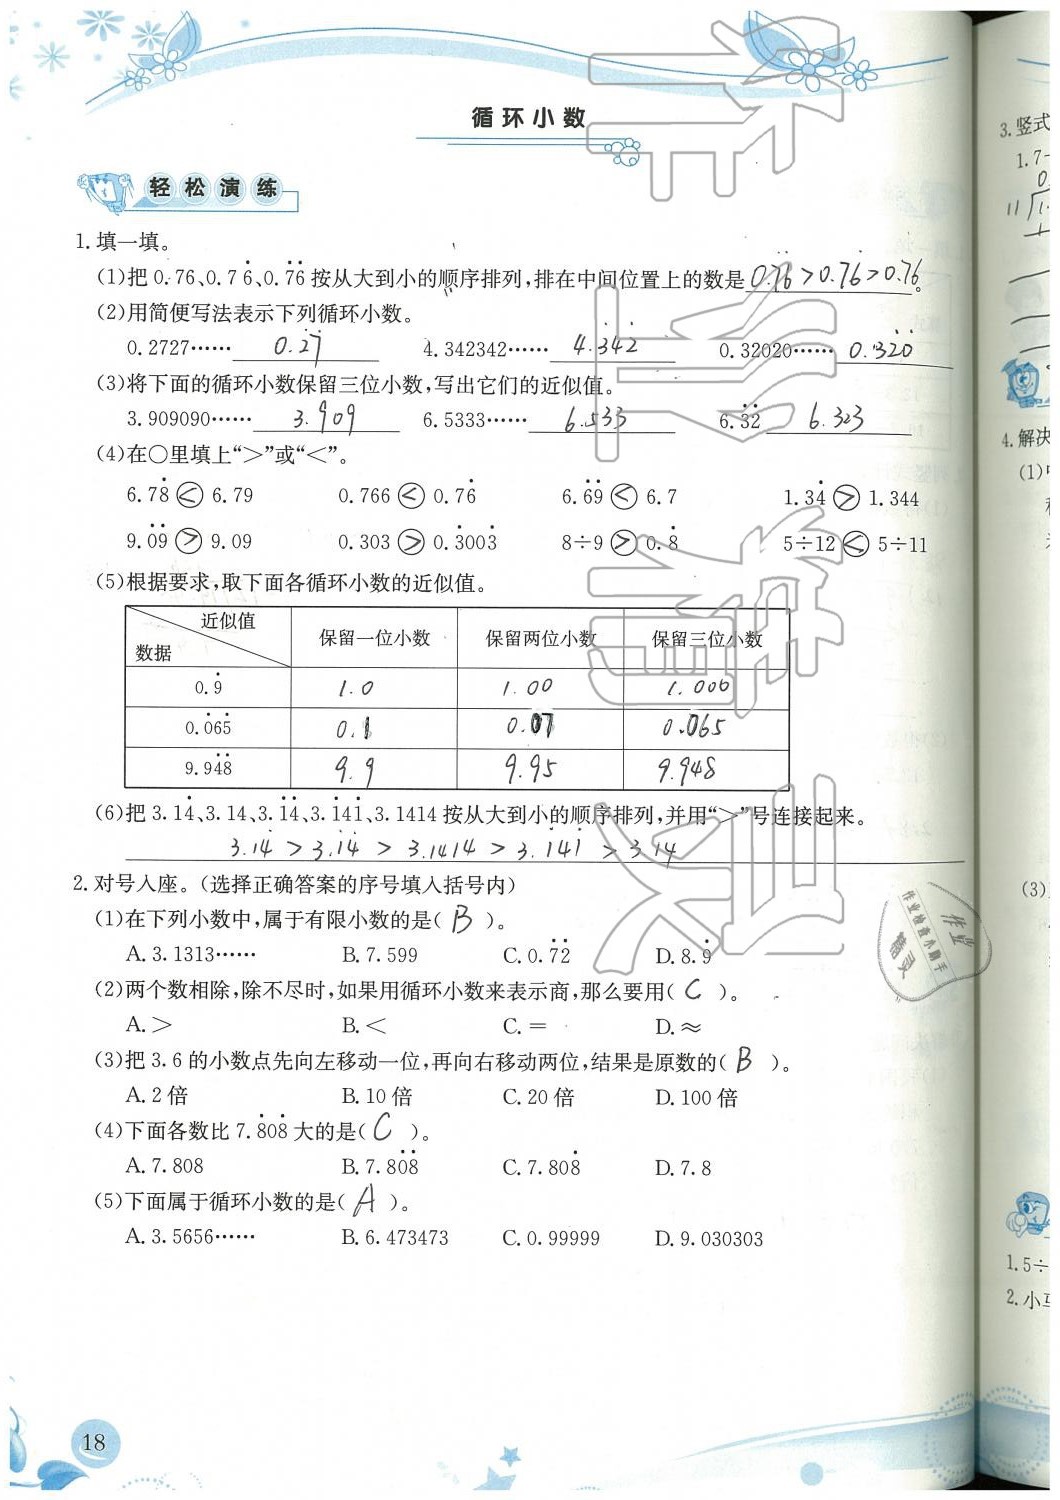 循环小数
轻松演练
1.填一填。
(1)把0.76、0.76̇、0.7̇6̇按从大到小的顺序排列,排在中间位置上的数是 0.7̇6̇>0.76̇>0.76。
(2)用简便写法表示下列循环小数。
0.2727…… 0.2̇7̇ 4.342342…… 4.3̇42̇ 0.32020…… 0.32̇0̇
(3)将下面的循环小数保留三位小数,写出它们的近似值。
3.909090…… 3.909 6.5333…… 6.533 6.3̇2̇ 6.323
(4)在○里填上“>”或“<”。
6.78̇ < 6.79 0.766 < 0.76̇ 6.6̇9̇ < 6.7 1.34̇ > 1.344
9.0̇9̇ > 9.09 0.303 > 0.3̇003̇ 8÷9 > 0.8̇ 5÷12 < 5÷11
(5)根据要求,取下面各循环小数的近似值。
近似值
数据 保留一位小数 保留两位小数 保留三位小数
0.9̇ 1.0 1.00 1.000
0.0̇65̇ 0.1 0.07 0.065
9.94̇8̇ 9.9 9.95 9.948
(6)把3.14̇、3.14、3.1̇4̇、3.1̇41̇、3.1414按从大到小的顺序排列,并用“>”号连接起来。
3.14̇ > 3.1̇4̇ > 3.1414 > 3.1̇41̇ > 3.14
2.对号入座。(选择正确答案的序号填入括号内)
(1)在下列小数中,属于有限小数的是( B )。
A.3.1313…… B.7.599 C.0.7̇2̇ D.8.9̇
(2)两个数相除,除不尽时,如果用循环小数来表示商,那么要用( C )。
A.> B.< C.= D.≈
(3)把3.6的小数点先向左移动一位,再向右移动两位,结果是原数的( B )。
A.2倍 B.10倍 C.20倍 D.100倍
(4)下面各数比7.8̇08̇大的是( C )。
A.7.808 B.7.80̇8̇ C.7.808̇ D.7.8
(5)下面属于循环小数的是( A )。
A.3.5656…… B.6.473473 C.0.99999 D.9.030303
18
作业
作业检查小助手
精灵
3.竖式
1.7
11
4.解决
(1)
(3)
1.5÷
2.小